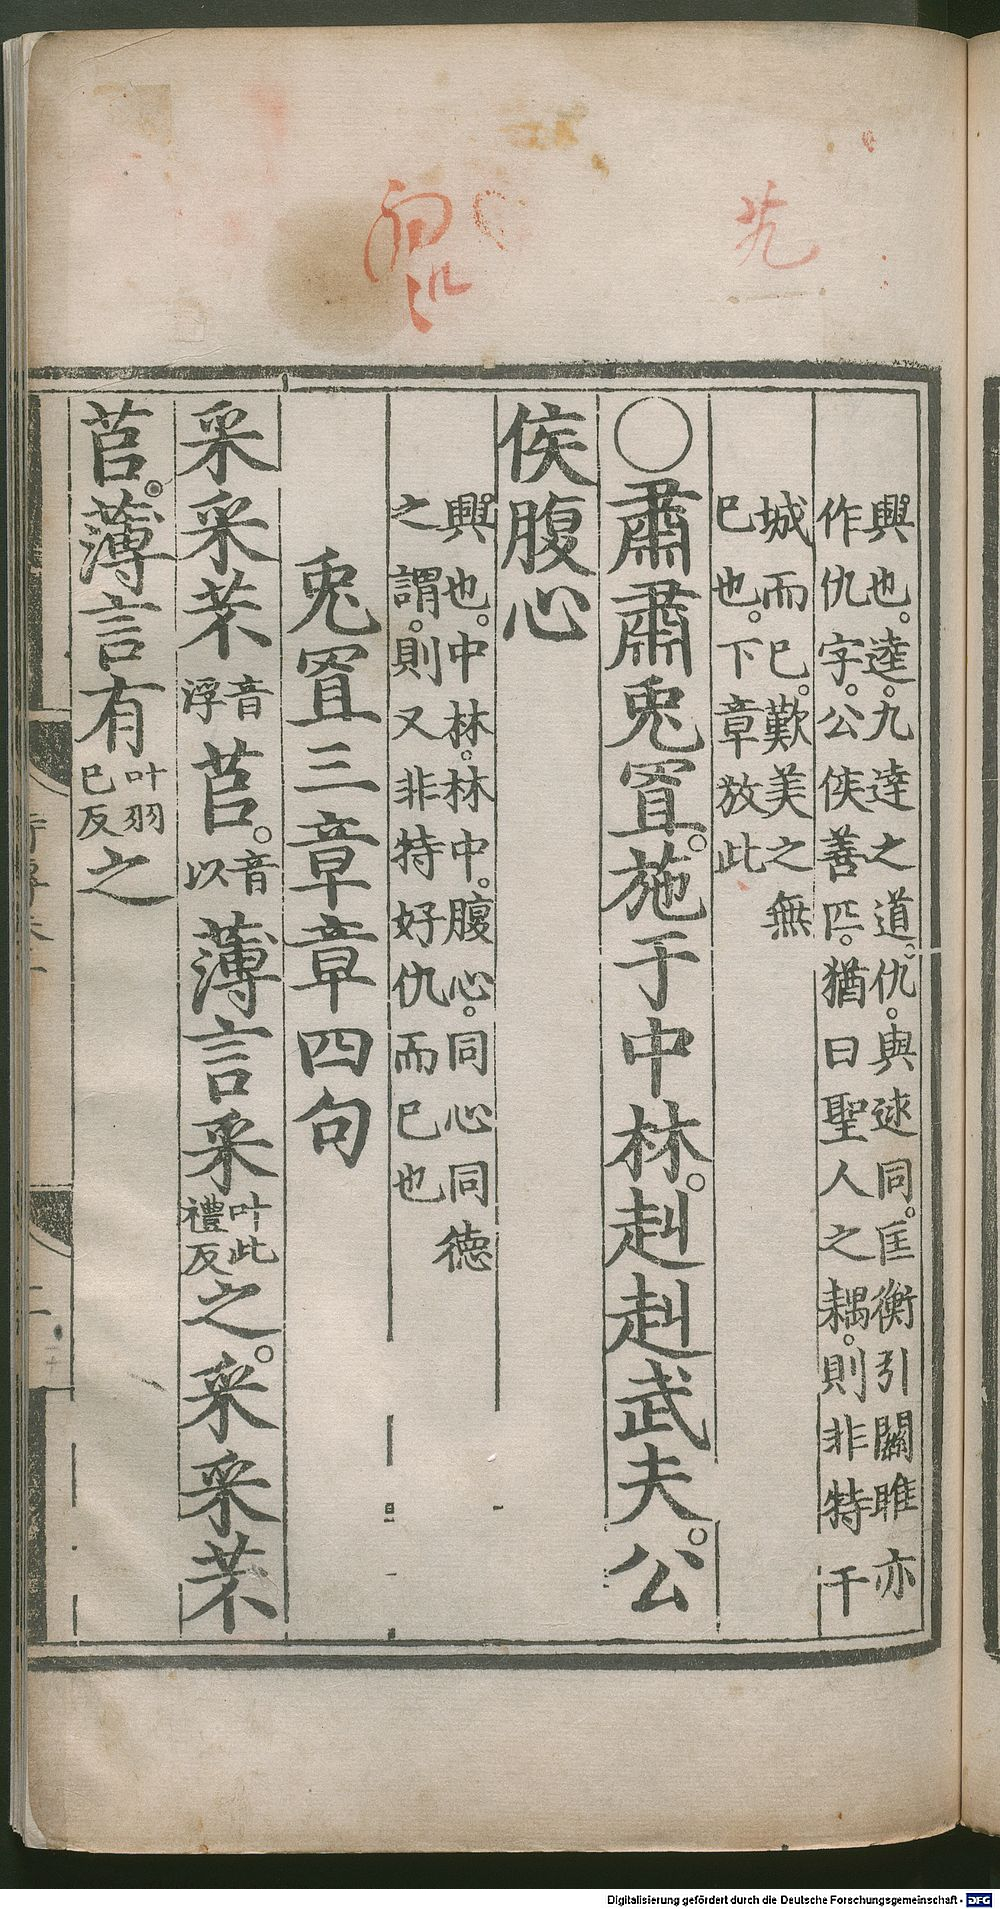 興也。逵。九逵之道。仇。與逑同。匡衡引關雎亦
作仇字。公侯善匹。猶曰聖人之耦。則非特干
城而已。歎美之無
已也。下章放此
○肅肅兎罝。施于中林。赳赳武夫。公
侯腹心
興也。中林。林中。腹心。同心同德
之謂。則又非特好仇而已也
兎罝三章章四句
采采芣音浮苢。音以薄言采叶此禮反之。采采芣
苢。薄言有叶羽已反之
Digitalisierung gefördert durch die Deutsche Forschungsgemeinschaft - DFG